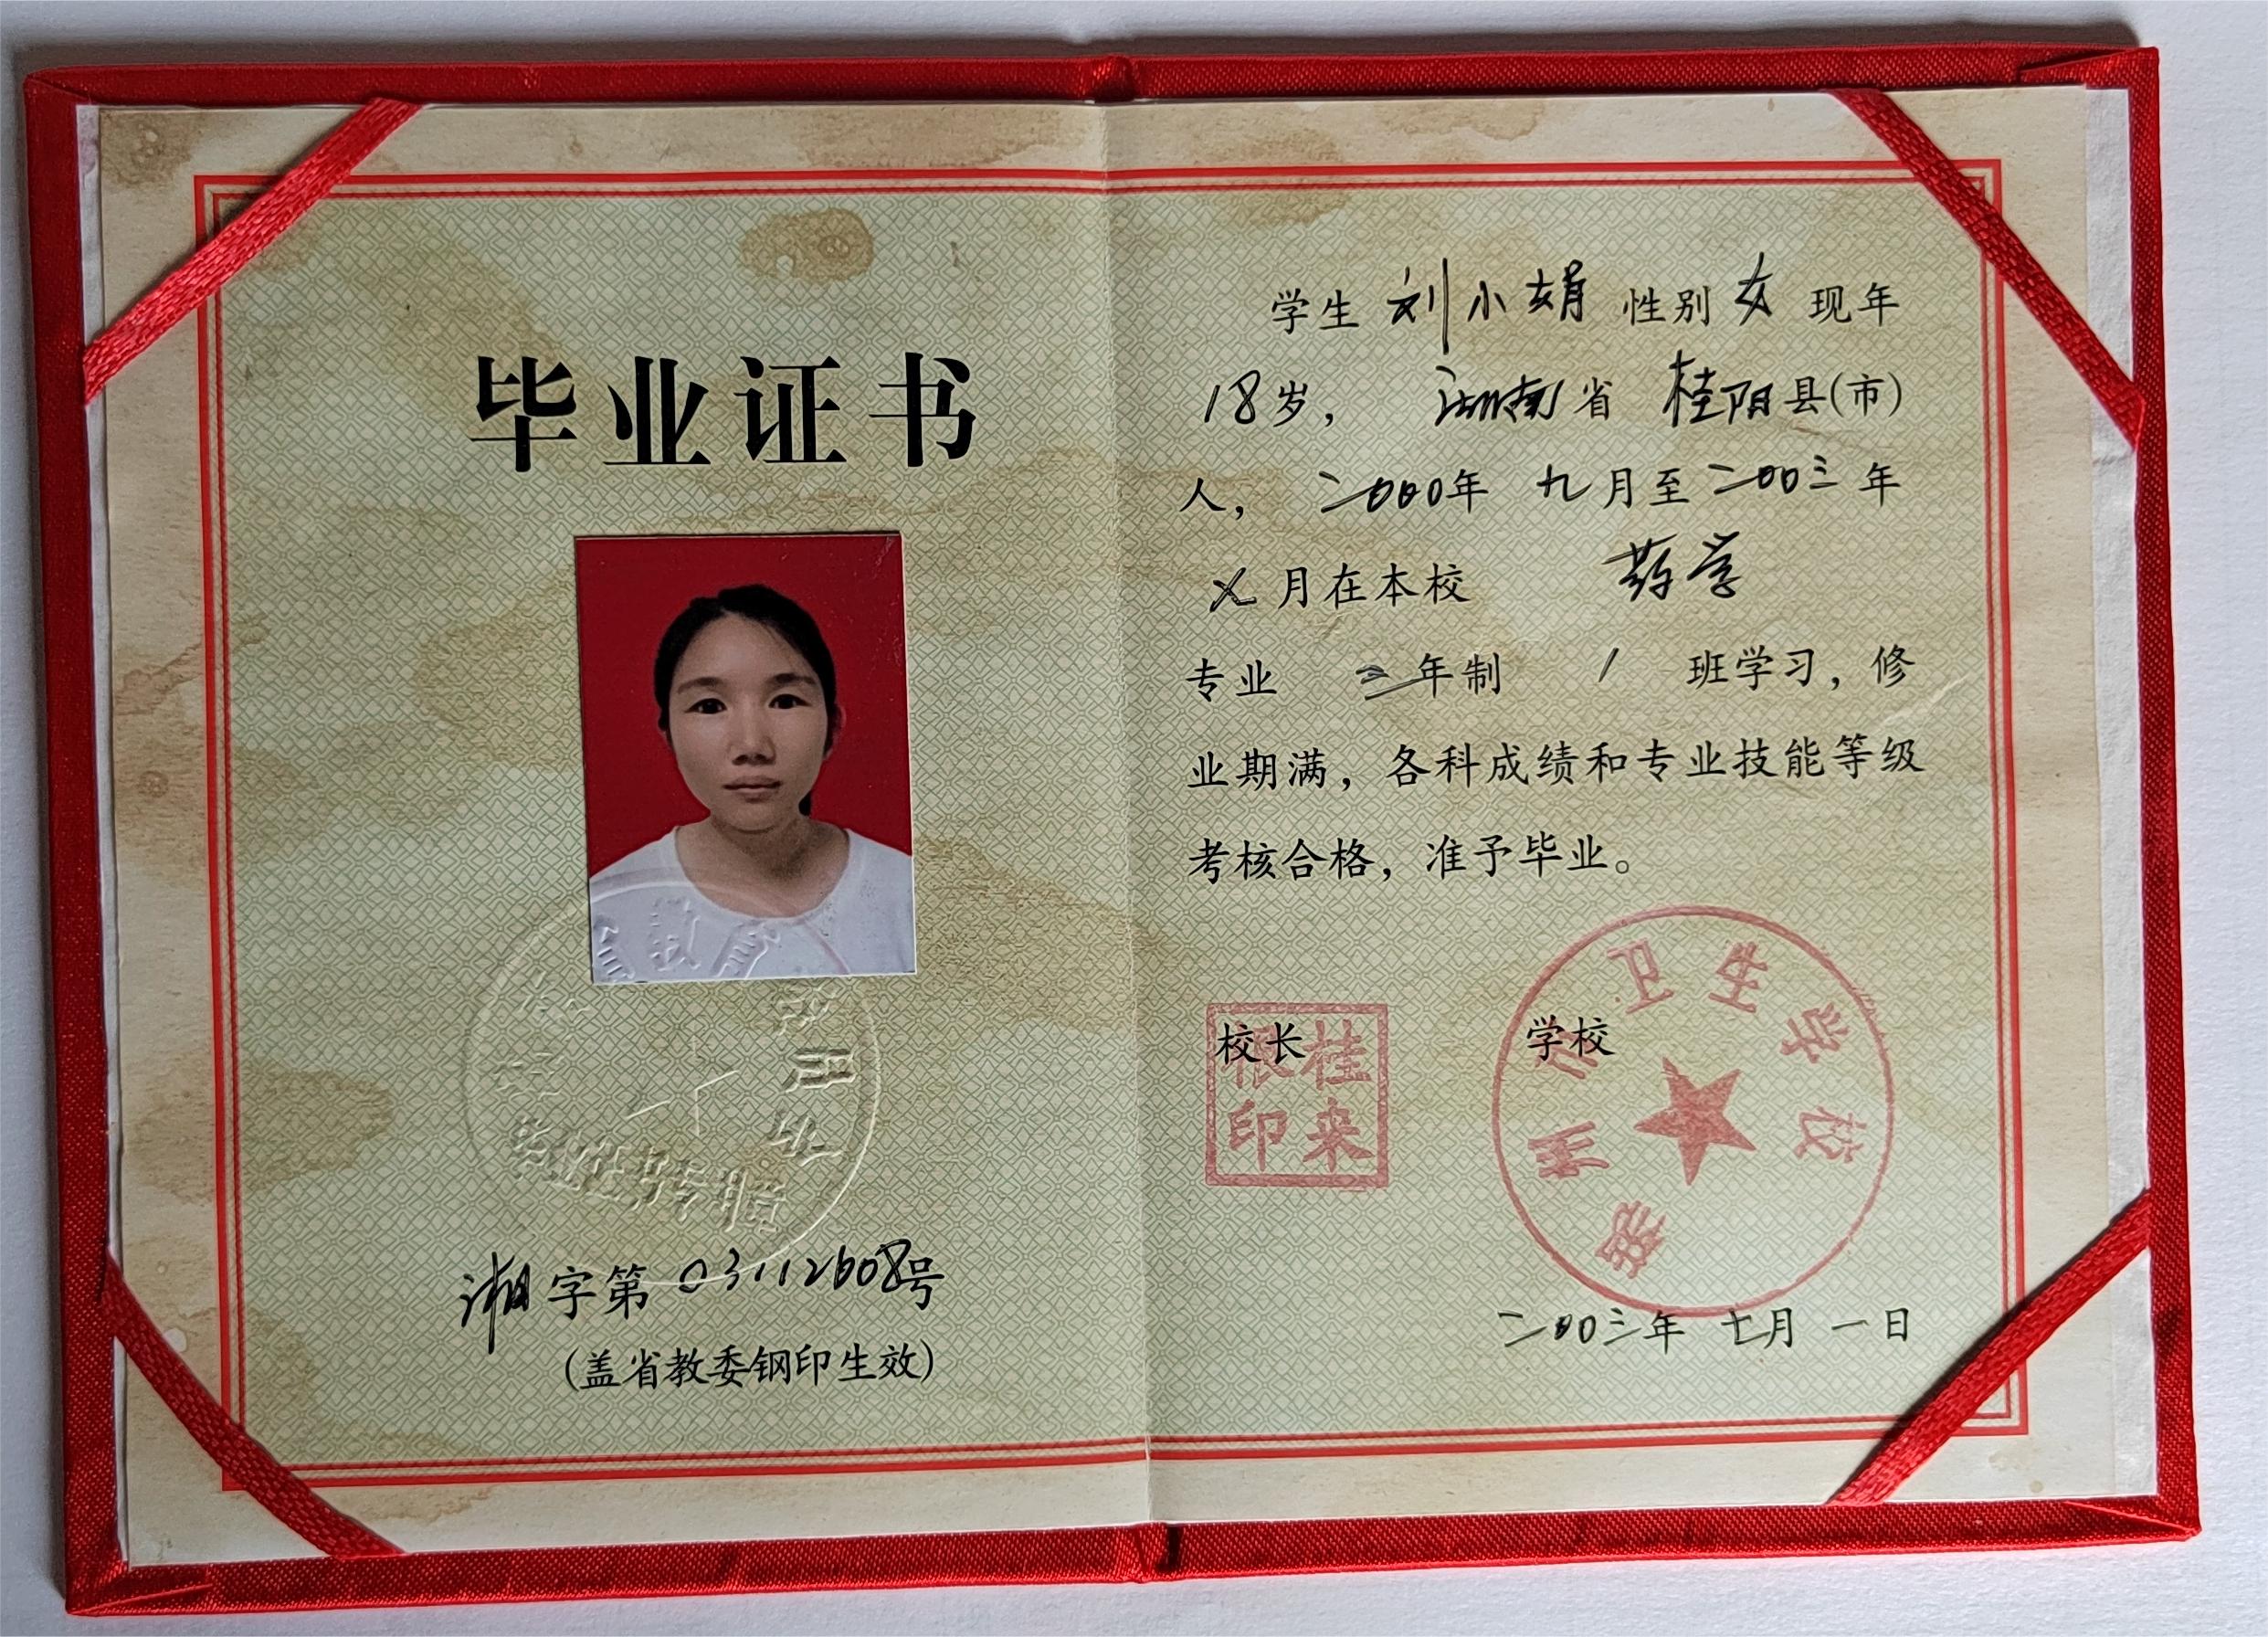 毕业证书
湘字第03112608号
(盖省教委钢印生效)
学生 刘小娟 性别 女 现年
18岁, 湖南省 桂阳县(市)
人, 二000年 九月至二00三年
月在本校 药学
专业 三年制 1 班学习, 修
业期满, 各科成绩和专业技能等级
考核合格, 准予毕业。
校长 学校
桂来根印
州 卫生学校
二00三年 七月 一日
毕业证书专用章